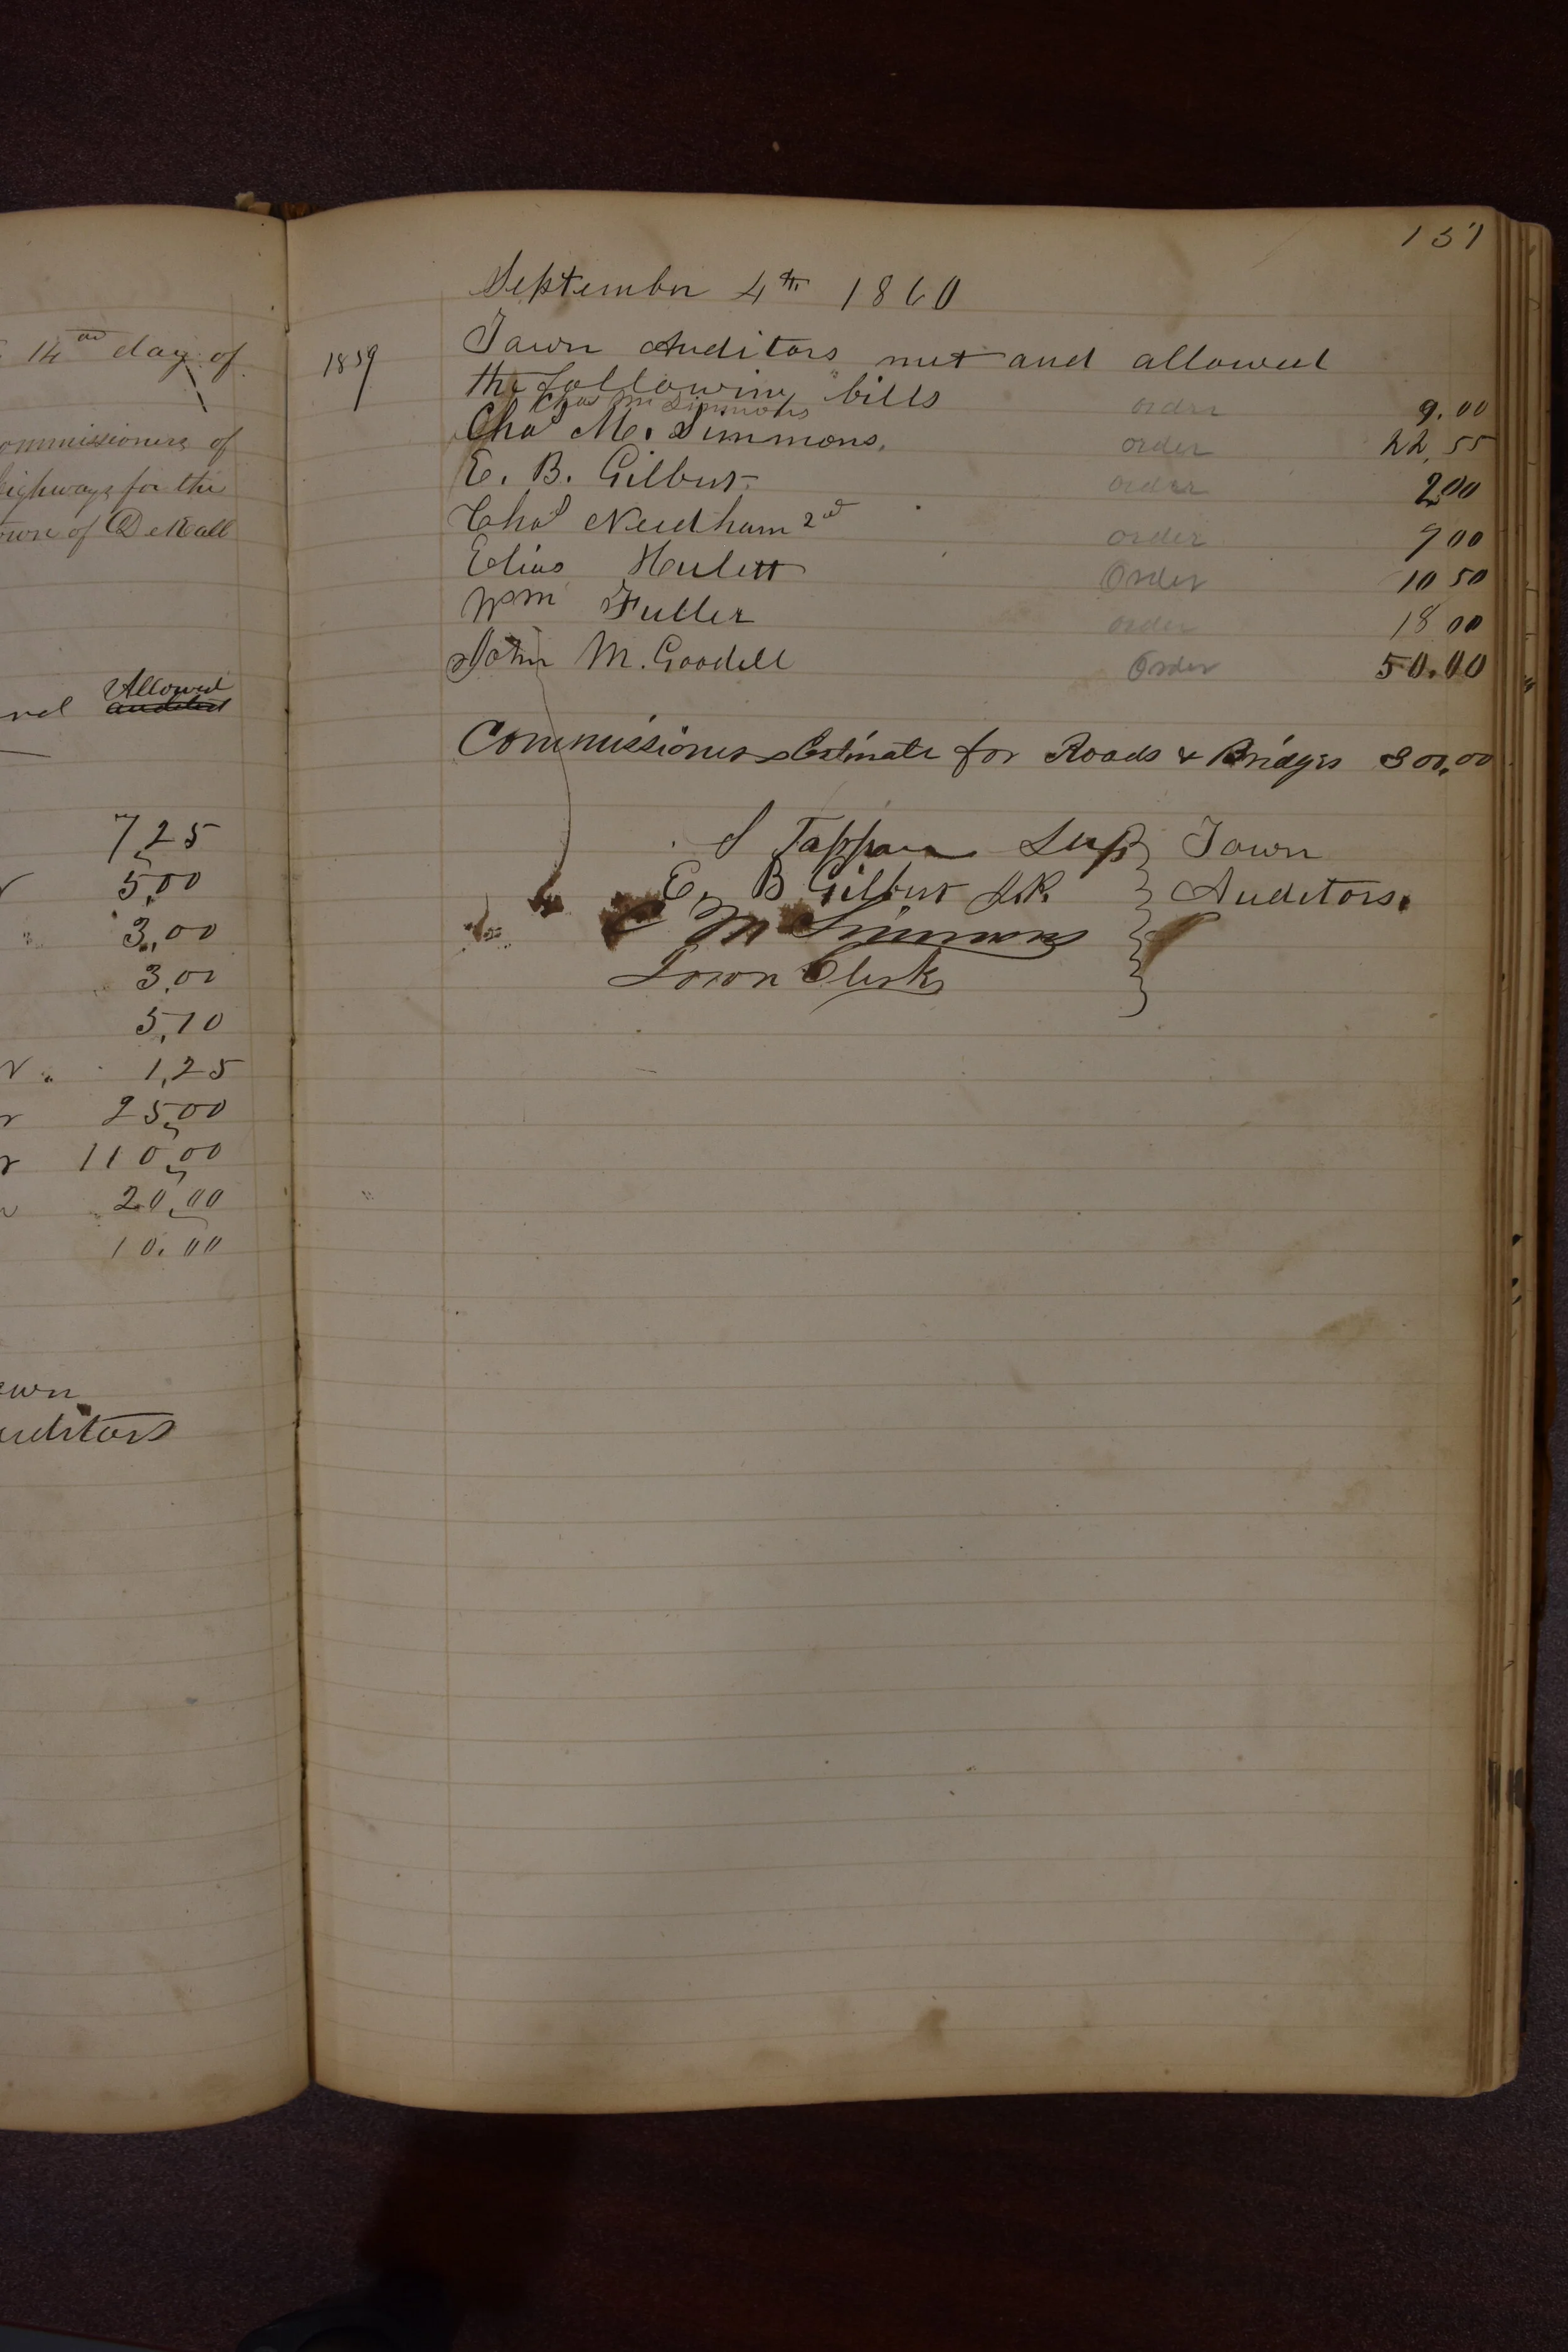 14th day of
ommissioners of
ighways for the
own of DeKalb
Allowed
audited
7,25
5,00
3,00
3,00
5,10
1,25
25,00
110,00
20,00
10.00
own
uditors
137
September 4th 1860
1859 Town Auditors met and allowed
the following bills
Chas M Simmons order 9.00
Chas M. Simmons. order 22,55
E. B. Gilbert order 2,00
Chas Needham 2nd order 9 00
Elias Hulett Order 10 50
Wm Fuller order 18 00
John M. Goodell Order 50.00
Commissioners Estimate for Roads & Bridges 300,00
S Tappan Sup Town
E, B Gilbert J.P. Auditors.
C M Simmons
Town Clerk